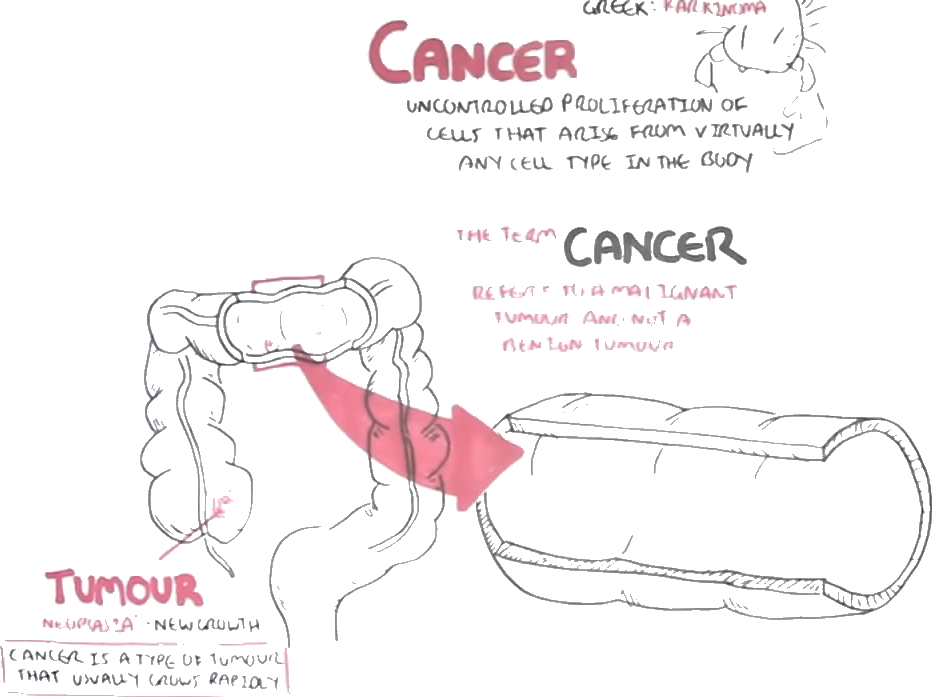 GREEK: KARKINOMA
CANCER
UNCONTROLLED PROLIFERATION OF
CELLS THAT ARISE FROM VIRTUALLY
ANY CELL TYPE IN THE BODY
THE TERM CANCER
REFERS TO A MALIGNANT
TUMOUR AND NOT A
BENIGN TUMOUR
TUMOUR
NEOPLASIA - NEW GROWTH
CANCER IS A TYPE OF TUMOUR
THAT USUALLY GROWS RAPIDLY